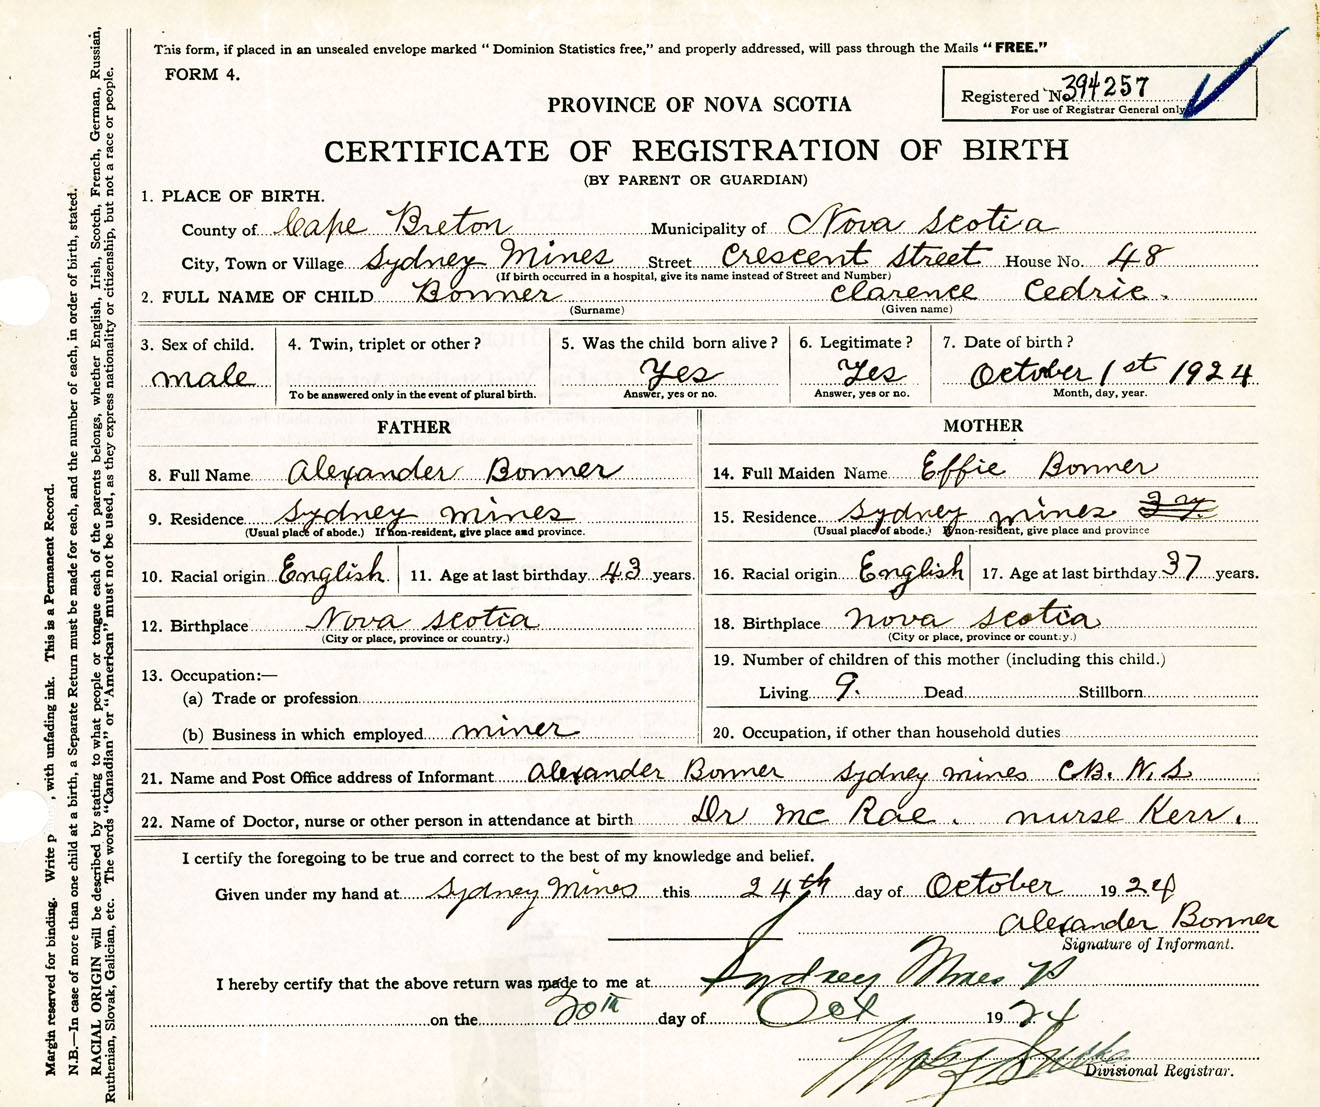 This form, if placed in an unsealed envelope marked "Dominion Statistics free," and properly addressed, will pass through the Mails "FREE."
FORM 4.
Registered No. 394257
For use of Registrar General only
PROVINCE OF NOVA SCOTIA
CERTIFICATE OF REGISTRATION OF BIRTH
(BY PARENT OR GUARDIAN)
1. PLACE OF BIRTH.
County of Cape Breton Municipality of Nova Scotia
City, Town or Village Sydney Mines Street Crescent Street House No. 48
(If birth occurred in a hospital, give its name instead of Street and Number)
2. FULL NAME OF CHILD Bonner Clarence Cedric.
(Surname) (Given name)
3. Sex of child. 4. Twin, triplet or other? 5. Was the child born alive? 6. Legitimate? 7. Date of birth?
male Yes Yes October 1st 1924
To be answered only in the event of plural birth. Answer, yes or no. Answer, yes or no. Month, day, year.
FATHER MOTHER
8. Full Name Alexander Bonner 14. Full Maiden Name Effie Bonner
9. Residence Sydney mines 15. Residence Sydney mines
(Usual place of abode.) If non-resident, give place and province. (Usual place of abode.) If non-resident, give place and province
10. Racial origin English 11. Age at last birthday 43 years. 16. Racial origin English 17. Age at last birthday 37 years.
12. Birthplace Nova Scotia 18. Birthplace nova scotia
(City or place, province or country.) (City or place, province or country.)
13. Occupation:— 19. Number of children of this mother (including this child.)
(a) Trade or profession Living 9. Dead Stillborn
(b) Business in which employed miner 20. Occupation, if other than household duties
21. Name and Post Office address of Informant Alexander Bonner Sydney mines C.B. N.S
22. Name of Doctor, nurse or other person in attendance at birth Dr Mc Rae. nurse Kerr.
I certify the foregoing to be true and correct to the best of my knowledge and belief.
Given under my hand at Sydney Mines this 24th day of October 1924
Alexander Bonner
Signature of Informant.
I hereby certify that the above return was made to me at Sydney Mines
on the 30th day of Oct 1924
Divisional Registrar.
Margin reserved for binding. Write p , with unfading ink. This is a Permanent Record.
N.B.—In case of more than one child at a birth, a Separate Return must be made for each, and the number of each, in order of birth, stated.
RACIAL ORIGIN will be described by stating to what people or tongue each of the parents belongs, whether English, Irish, Scotch, French, German, Russian,
Ruthenian, Slovak, Galician, etc. The words "Canadian" or "American" must not be used, as they express nationality or citizenship, but not a race or people.